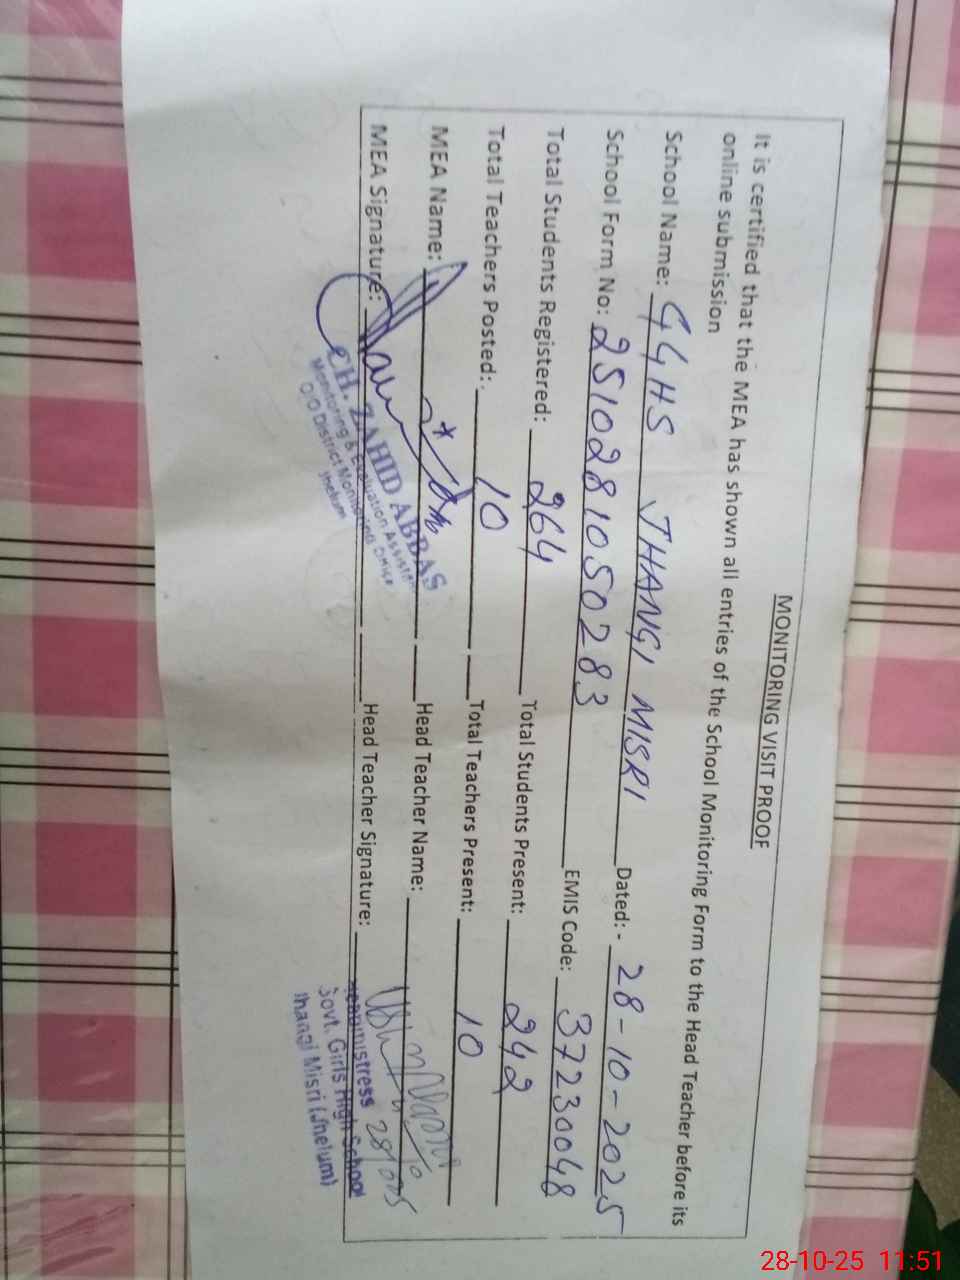 MONITORING VISIT PROOF
It is certified that the MEA has shown all entries of the School Monitoring Form to the Head Teacher before its
online submission
School Name: GGHS THANGI MISRI Dated:- 28-10-2025
School Form No: 2510281050283 EMIS Code: 37230048
Total Students Registered: 264 Total Students Present: 242
Total Teachers Posted: 10 Total Teachers Present: 10
MEA Name: Head Teacher Name:
MEA Signature: Head Teacher Signature:
CH. ZAHID ABBAS
Monitoring & Evaluation Assistant
O/O District Monitoring Office
Jhelum
Headmistress
Govt. Girls High School
Thangi Misri (Jhelum)
28-10-25 11:51